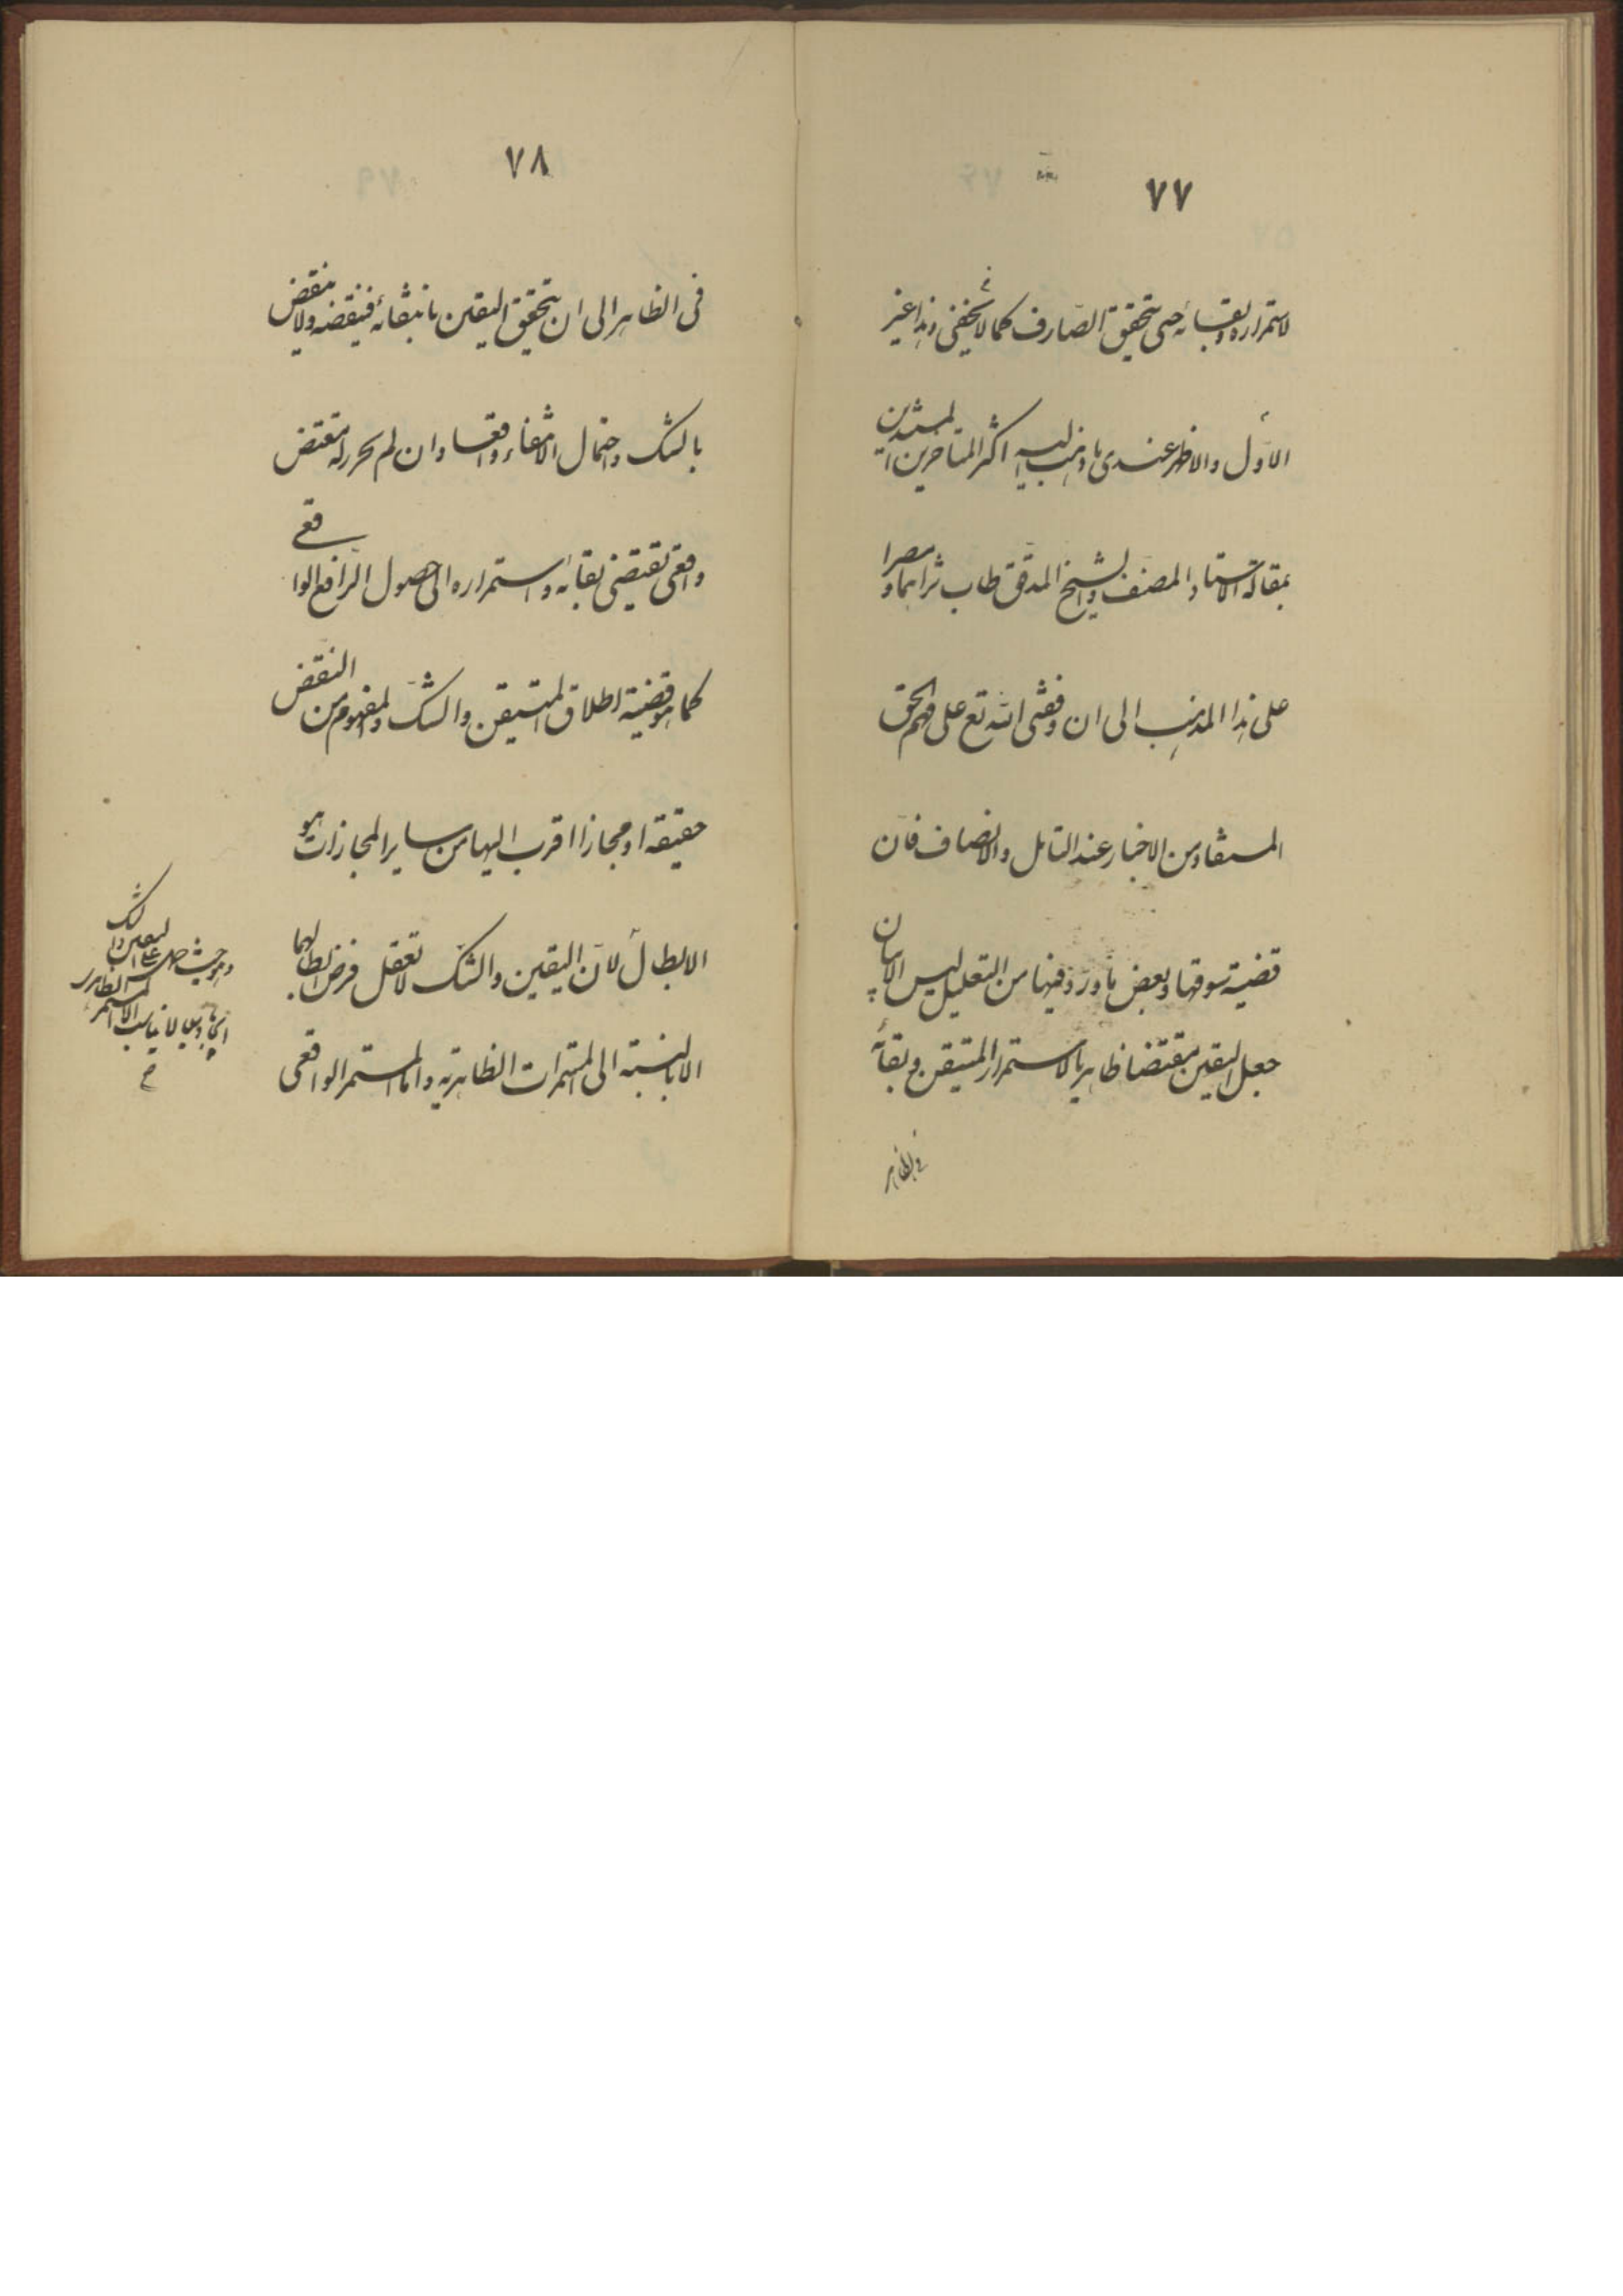 ٧٧
لاستمراره وبقائه حتى يتحقق الصارف كما لا يخفى وهذا غير
الأول والاظهر عندى ما ذهب اليه اكثر المتأخرين
بمقالة الاستاد المصنف والشيخ المدقق طاب ثراهما و مصرا
على هذا المذهب الى ان وفقنى الله تع على فهم الحق
المستفاد من الاخبار عند التامل والانصاف فان
قضية سوقها وبعض ما ورد فيها من التعليل ليس الا بيان
جعل اليقين مقتضا ظاهريا لاستمرار المتيقن وبقائه
فى الظاهر
٧٨
فى الظاهر الى ان يتحقق اليقين بانتفائه فينقضه ولا ينقض
بالشك واحتمال الانتفاء واقعا وان لم يحرز له مقتض
واقعى يقتضى بقائه واستمراره الى حصول الرافع الواقعى
كما هو قضية اطلاق المتيقن والشك والمفهوم من النقض
حقيقة او مجازا اقرب اليها من ساير المجازات هو
الابطال لان اليقين والشك لا تعقل فرض ابطالهما
الا بالنسبة الى المتمرات الظاهرية واما المستمر الواقعى